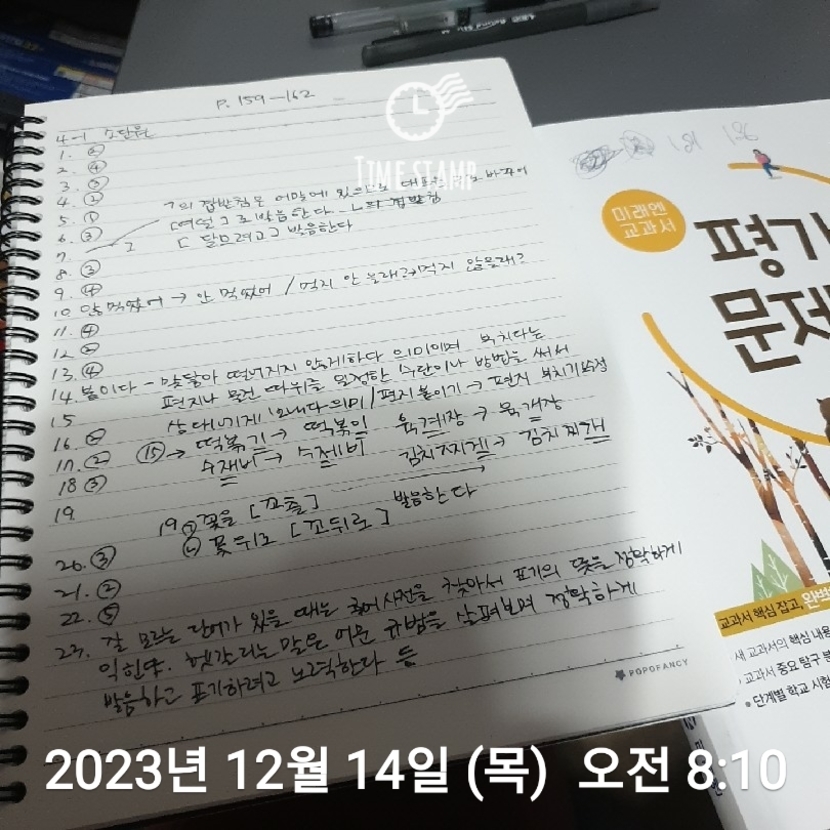 P. 159-162
4-1 소단원
1. ②
2. ④
3. ③
4. ②
5. ①
6. ③
7.
ㄱ의 겹받침은 어말에 있으므로 대표음 바꾸어
[여덜]로 발음한다. 겹받침
[달므려고] 발음한다
8. ③
9. ④
10. 않먹었어 → 안 먹었어 / 먹지 안을래? → 먹지 않을래?
11. ④
12. ②
13. ④
14. 붙이다 - 맞닿아 떨어지지 않게하다 의미이며 부치다는
편지나 물건 따위를 일정한 수단이나 방법을 써서
상대에게 보내다 의미 / 편지 붙이기 → 편지 부치기 수정
15
⑮ → 떡볶기 → 떡볶이 육계장 → 육개장
수재비 → 수제비 김치찌게 → 김치찌개
16.
17. ②
18 ③
19
19. ㉠ 꽃을 [꼬츨]
㉡ 꽃뒤로 [꼬뒤로] 발음한다
20. ③
21. ②
22. ⑤
23. 잘 모르는 단어가 있을 때는 국어사전을 찾아서 표기와 뜻을 정확하게
익힌다. 헷갈리는 말은 어문 규범을 살펴보며 정확하게
발음하고 표기하려고 노력한다 등
POPOFANCY
TIME STAMP
131 136
미래엔
교과서
평가
문제
교과서 핵심 잡고, 완벽
새 교과서의 핵심 내용
교과서 중요 탐구
단계별 학교 시험
2023년 12월 14일 (목) 오전 8:10